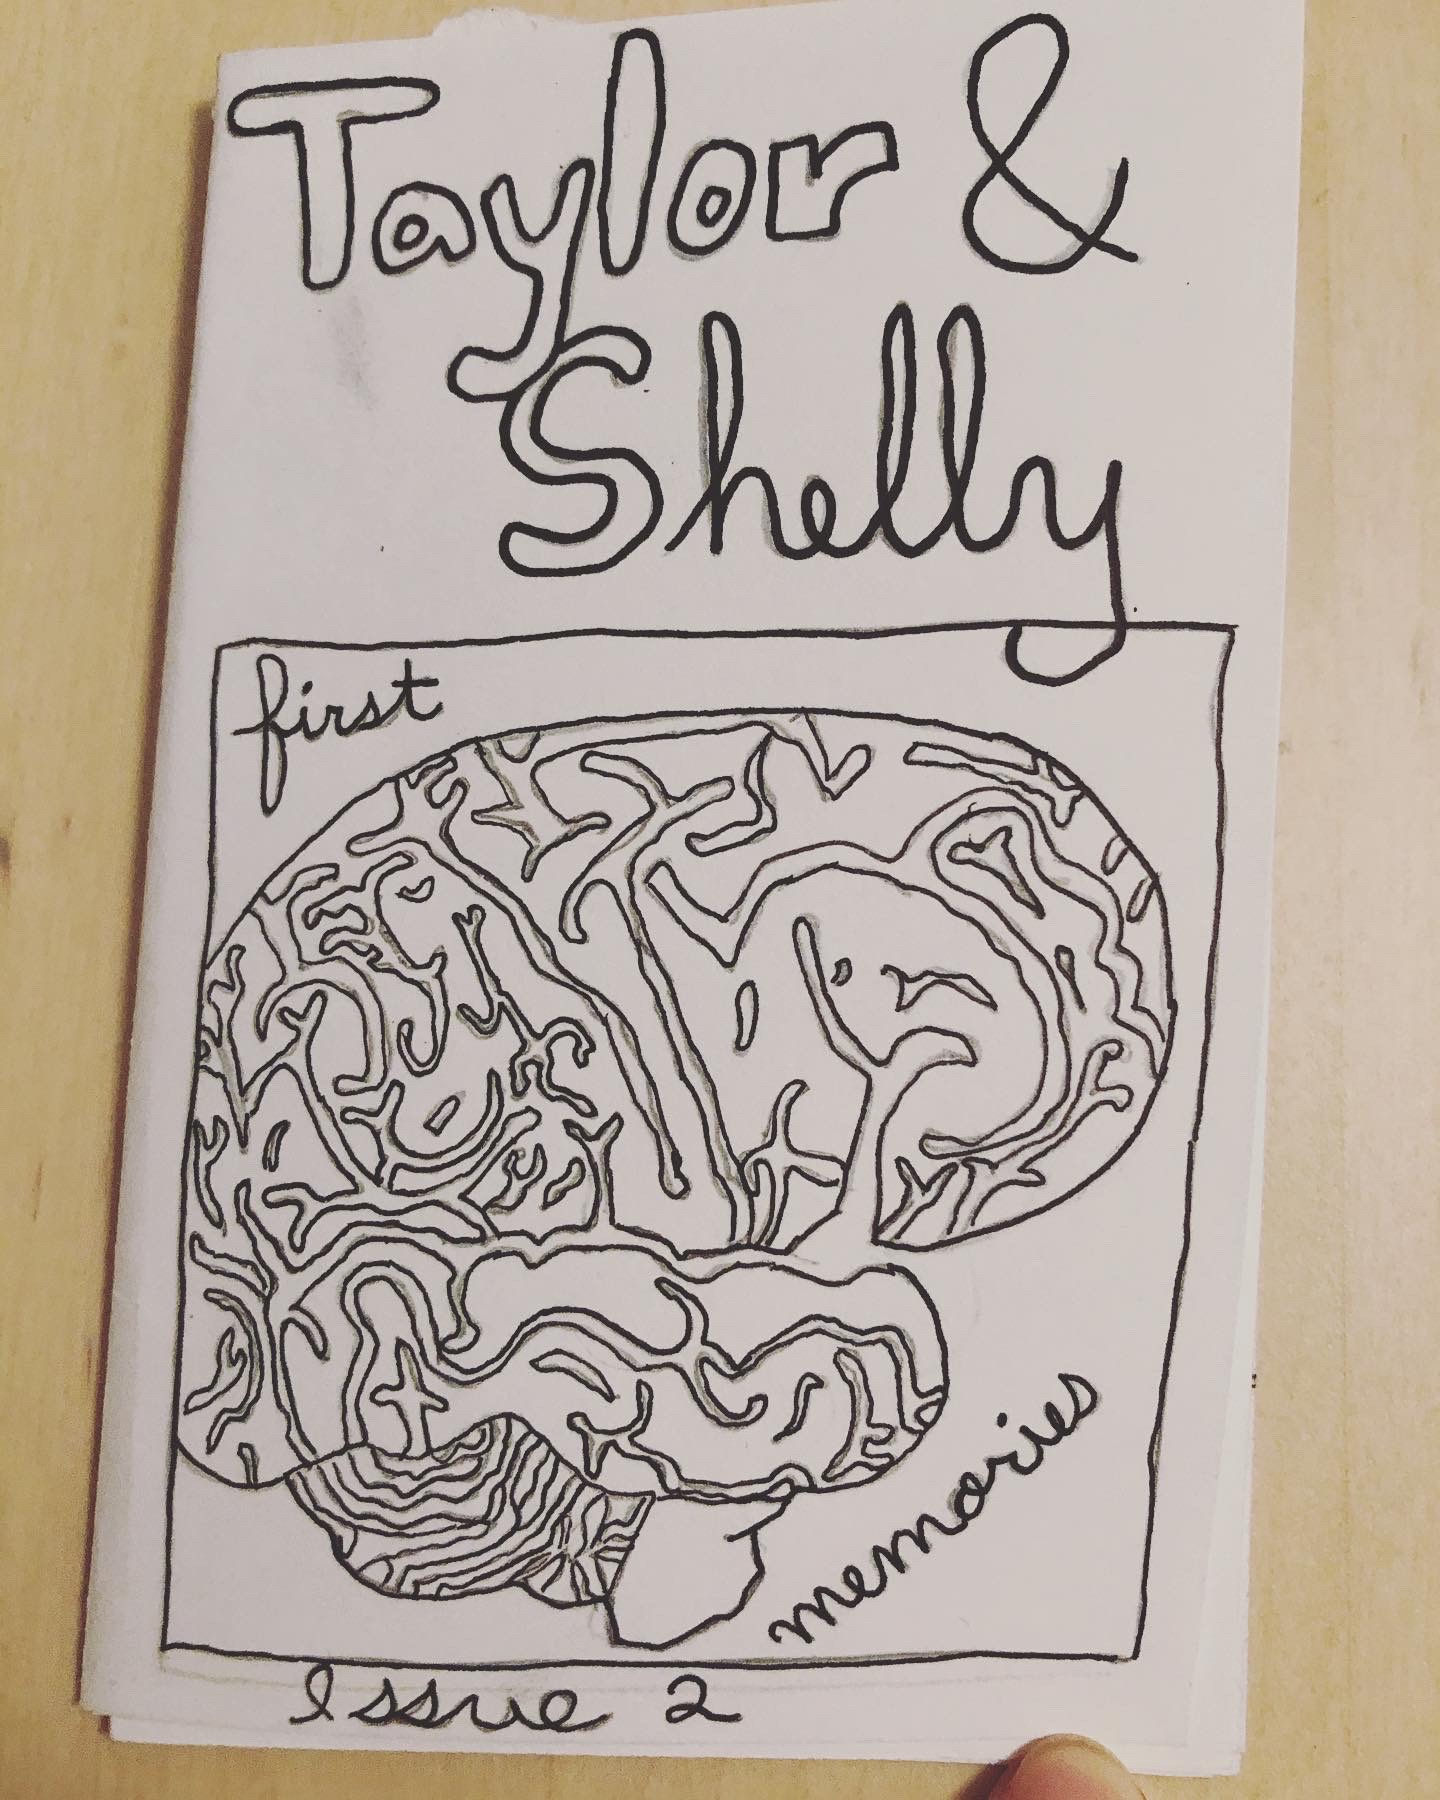 Taylor &
Shelly
first
memories
Issue 2